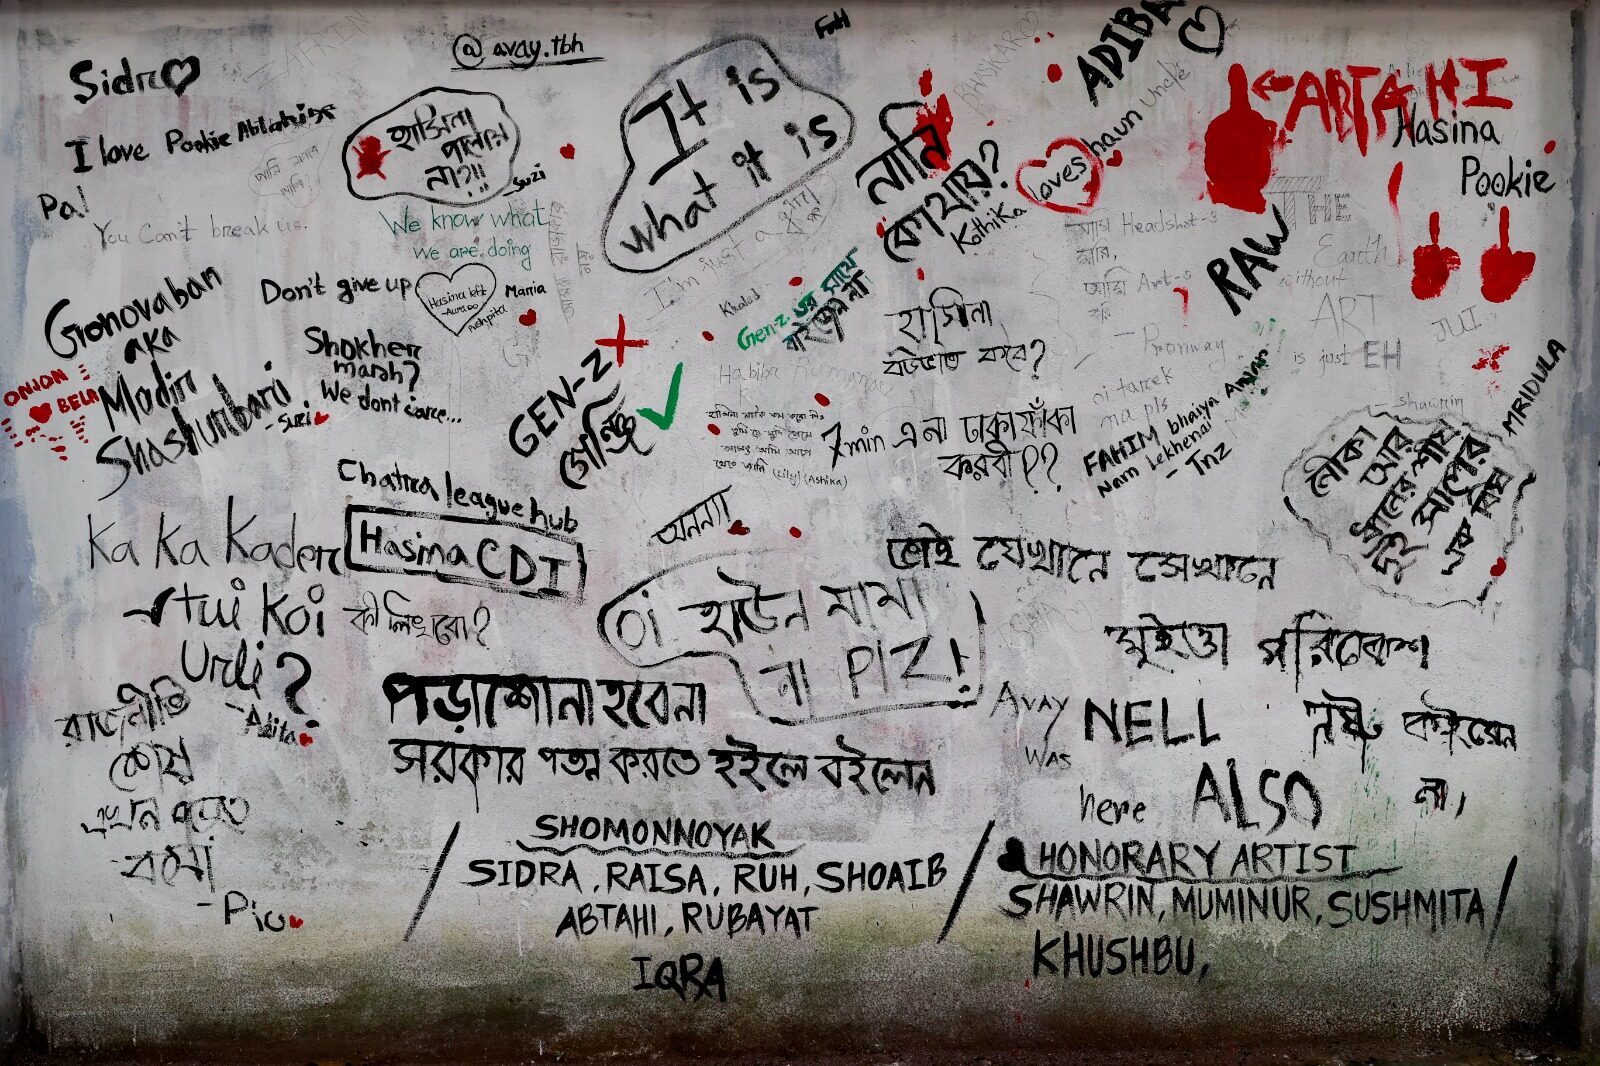 Sidra
I love Pookie Abtahi
Pa!
You Can't break us.
@avay.tbh
হাসিনা
পালায়
না?!!!
Suzi
We know what
we are doing
It is
what it is
FnH
ADIBA
নানি
কোথায়?
Kothika loves shaun uncle
ABTAHI
Hasina
Pookie
RAW
THE
Earth
without
ART
is just EH
- Shawrin
JUI
MRIDULA
আমি Headshot-3
মারি,
আমি Art-3
- Pronway
Gonovaban
aka
Modir
Shashurbari
- Suzi
ONJON
BELA
Don't give up
Hasina bft
Mania
Shokher
marsh?
We dont care...
I'm just a
Khaled
Gen-z এর সাথে
বাইড়ো না
GEN-Z
গেঞ্জি
হাসিনা
বউভাত কবে?
Habiba
(Lily) (Ashika)
7min এ না ঢাকা ফাঁকা
করবী??
oi tarek
ma pls
FAHIM bhaiya Amar
Nam Lekhenai
- Tnz
নৌকা
আর
ধানের শীষ
দুই
সাপের
একই বিষ
Chatra league hub
Hasina CDI
অনন্যা
Ka Ka Kader
tui Koi
কী লিখবো?
Urdi?
- Adita
রাজনীতি
শেষ
এখন পড়তে
বসো
- Piu
oi হাউন মামা
না PlZ!
ভাই যেখানে সেখানে
মুইত্তা পরিবেশ
নষ্ট কইরেন
না।
পড়াশোনা হবে না
সরকার পতন করতে হইলে বইলেন
Avay
Was
here
NELL
ALSO
SHOMONNOYAK
SIDRA, RAISA, RUH, SHOAIB
ABTAHI, RUBAYAT
IQRA
HONORARY ARTIST
SHAWRIN, MUMINUR, SUSHMITA
KHUSHBU,